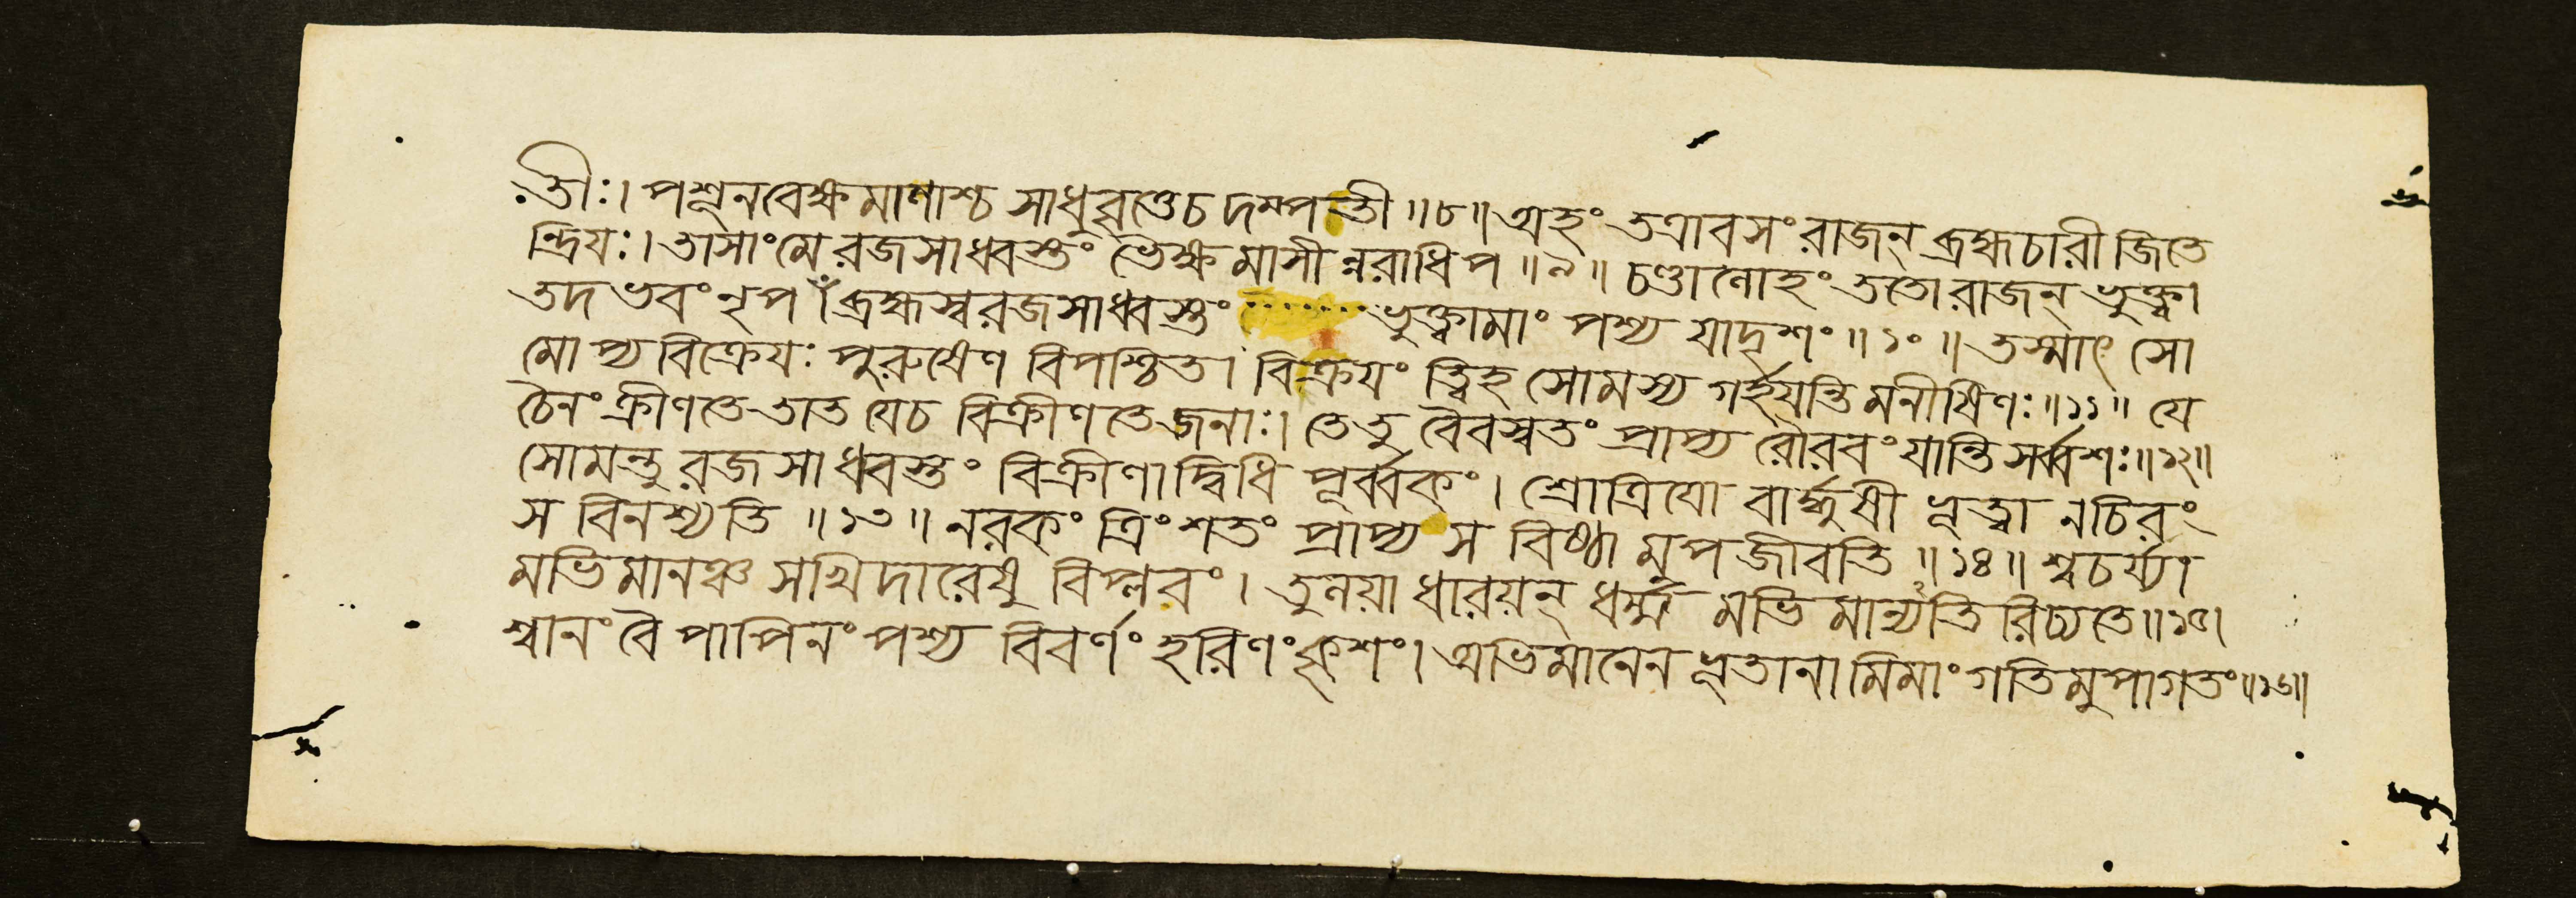 তীঃ। পশূনবেক্ষমাণাশ্চ সাধুবৃত্তেচ দম্পতী ॥৮॥ অহং তত্রাবসং রাজন্ ব্রহ্মচারী জিতে
ন্দ্রিযঃ। তাসাং মে রজসাধ্বস্তং ভৈক্ষমাসীন্নরাধিপ ॥৯॥ চণ্ডালোহং ততো রাজন্ ভুক্ত্বা
তদভবং নৃপ ব্রহ্মস্বরজসাধ্বস্তং ভুক্ত্বামাং পশ্য যাদৃশং ॥১০॥ তস্মাৎ সো
মোপ্যবিক্রেযঃ পুরুষেণ বিপশ্চিতা। বিক্রযং ত্বিহ সোমস্য গর্হযন্তি মনীষিণঃ ॥১১॥ যে
চৈনং ক্রীণতে তাত যেচ বিক্রীণতে জনাঃ। তে তু বৈবস্বতং প্রাপ্য রৌরবং যান্তি সর্ব্বশঃ ॥১২॥
সোমন্তু রজসাধ্বস্তং বিক্রীণাদ্বিধি পূর্ব্বকং। শ্রোত্রিযো বার্দ্ধুষী ভূত্বা নচিরং
স বিনশ্যতি ॥১৩॥ নরকং ত্রিংশতং প্রাপ্য স বিষ্ঠামুপজীবতি ॥১৪॥ শ্বচর্য্যা
মভিমানঞ্চ সখিদারেষু বিপ্লবং। তুলয়া ধারয়ন্ ধর্ম্ম মভিমান্যতিরিচ্যতে ॥১৫।
শ্বানং বৈ পাপিনং পশ্য বিবর্ণং হরিণং কৃশং। অভিমানেন ভূতানামিমাং গতিমুপাগতং ॥১৬॥